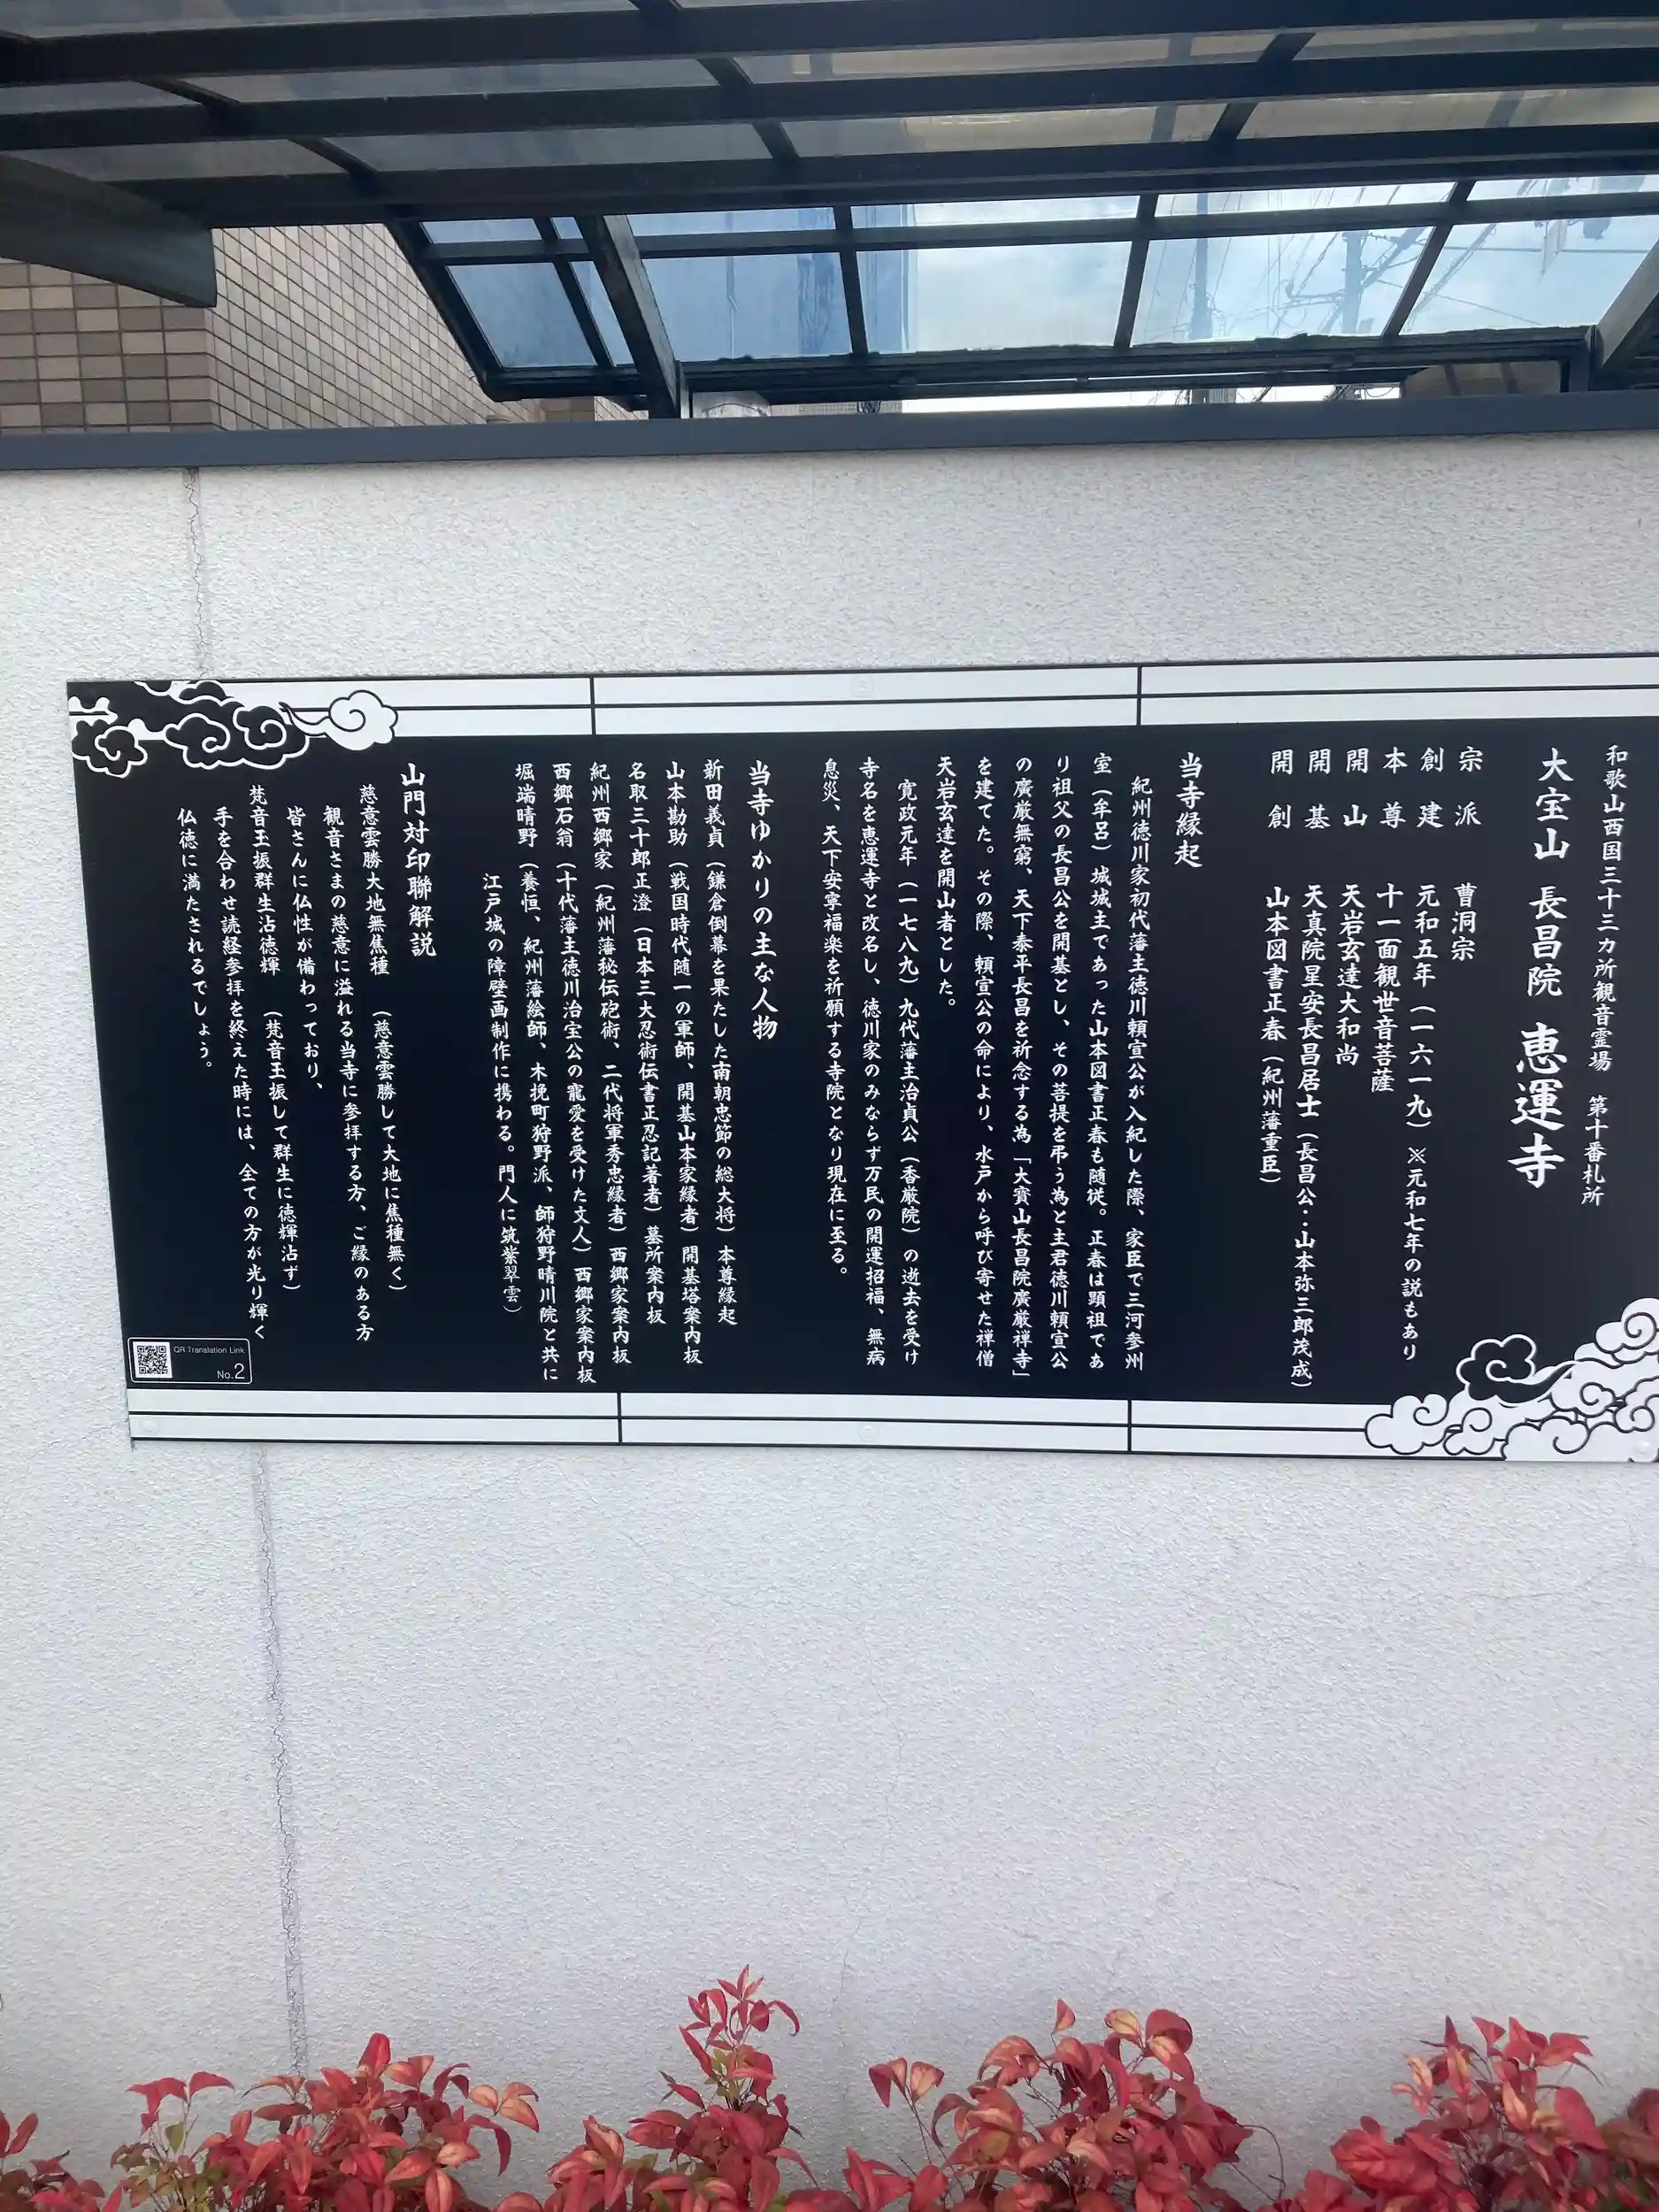 和歌山西国三十三カ所観音霊場 第十番札所
大宝山 長昌院 恵運寺
宗派 曹洞宗
創建 元和五年（一六一九）※元和七年の説もあり
本尊 十一面観世音菩薩
開山 天岩玄達大和尚
開基 天真院星安長昌居士（長昌公：山本弥三郎茂成）
開創 山本図書正春（紀州藩重臣）
当寺縁起
紀州徳川家初代藩主徳川頼宣公が入紀した際、家臣で三河参州
室（牟呂）城城主であった山本図書正春も随従。正春は顕祖であ
り祖父の長昌公を開基とし、その菩提を弔う為と主君徳川頼宣公
の廣厳無窮、天下泰平長昌を祈念する為「大寳山長昌院廣厳禅寺」
を建てた。その際、頼宣公の命により、水戸から呼び寄せた禅僧
天岩玄達を開山者とした。
寛政元年（一七八九）九代藩主治貞公（香厳院）の逝去を受け
寺名を恵運寺と改名し、徳川家のみならず万民の開運招福、無病
息災、天下安寧福楽を祈願する寺院となり現在に至る。
当寺ゆかりの主な人物
新田義貞（鎌倉倒幕を果たした南朝忠節の総大将）本尊縁起
山本勘助（戦国時代随一の軍師、開基山本家縁者）開基塔案内板
名取三十郎正澄（日本三大忍術伝書正忍記著者）墓所案内板
紀州西郷家（紀州藩秘伝砲術、二代将軍秀忠縁者）西郷家案内板
西郷石翁（十代藩主徳川治宝公の寵愛を受けた文人）西郷家案内板
堀端晴野（養恒、紀州藩絵師、木挽町狩野派、師狩野晴川院と共に
江戸城の障壁画制作に携わる。門人に筑紫翠雲）
山門対印聯解説
慈意雲勝大地無焦種 （慈意雲勝して大地に焦種無く）
観音さまの慈意に溢れる当寺に参拝する方、ご縁のある方
皆さんに仏性が備わっており、
梵音玉振群生沾徳輝 （梵音玉振して群生に徳輝沾ず）
手を合わせ読経参拝を終えた時には、全ての方が光り輝く
仏徳に満たされるでしょう。
QR Translation Link
No.2